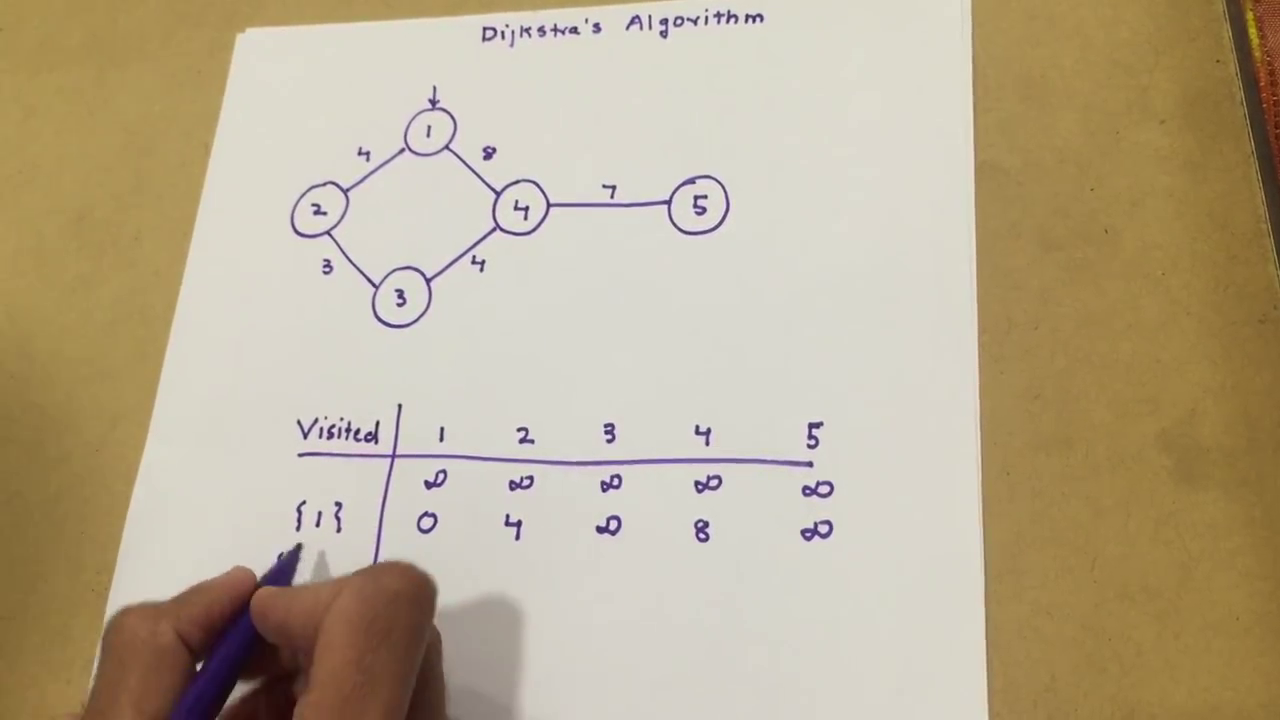 Dijkstra's Algorithm
↓
1
4 8
2 4 7 5
3 4
3
Visited 1 2 3 4 5
∞ ∞ ∞ ∞ ∞
{1} 0 4 ∞ 8 ∞